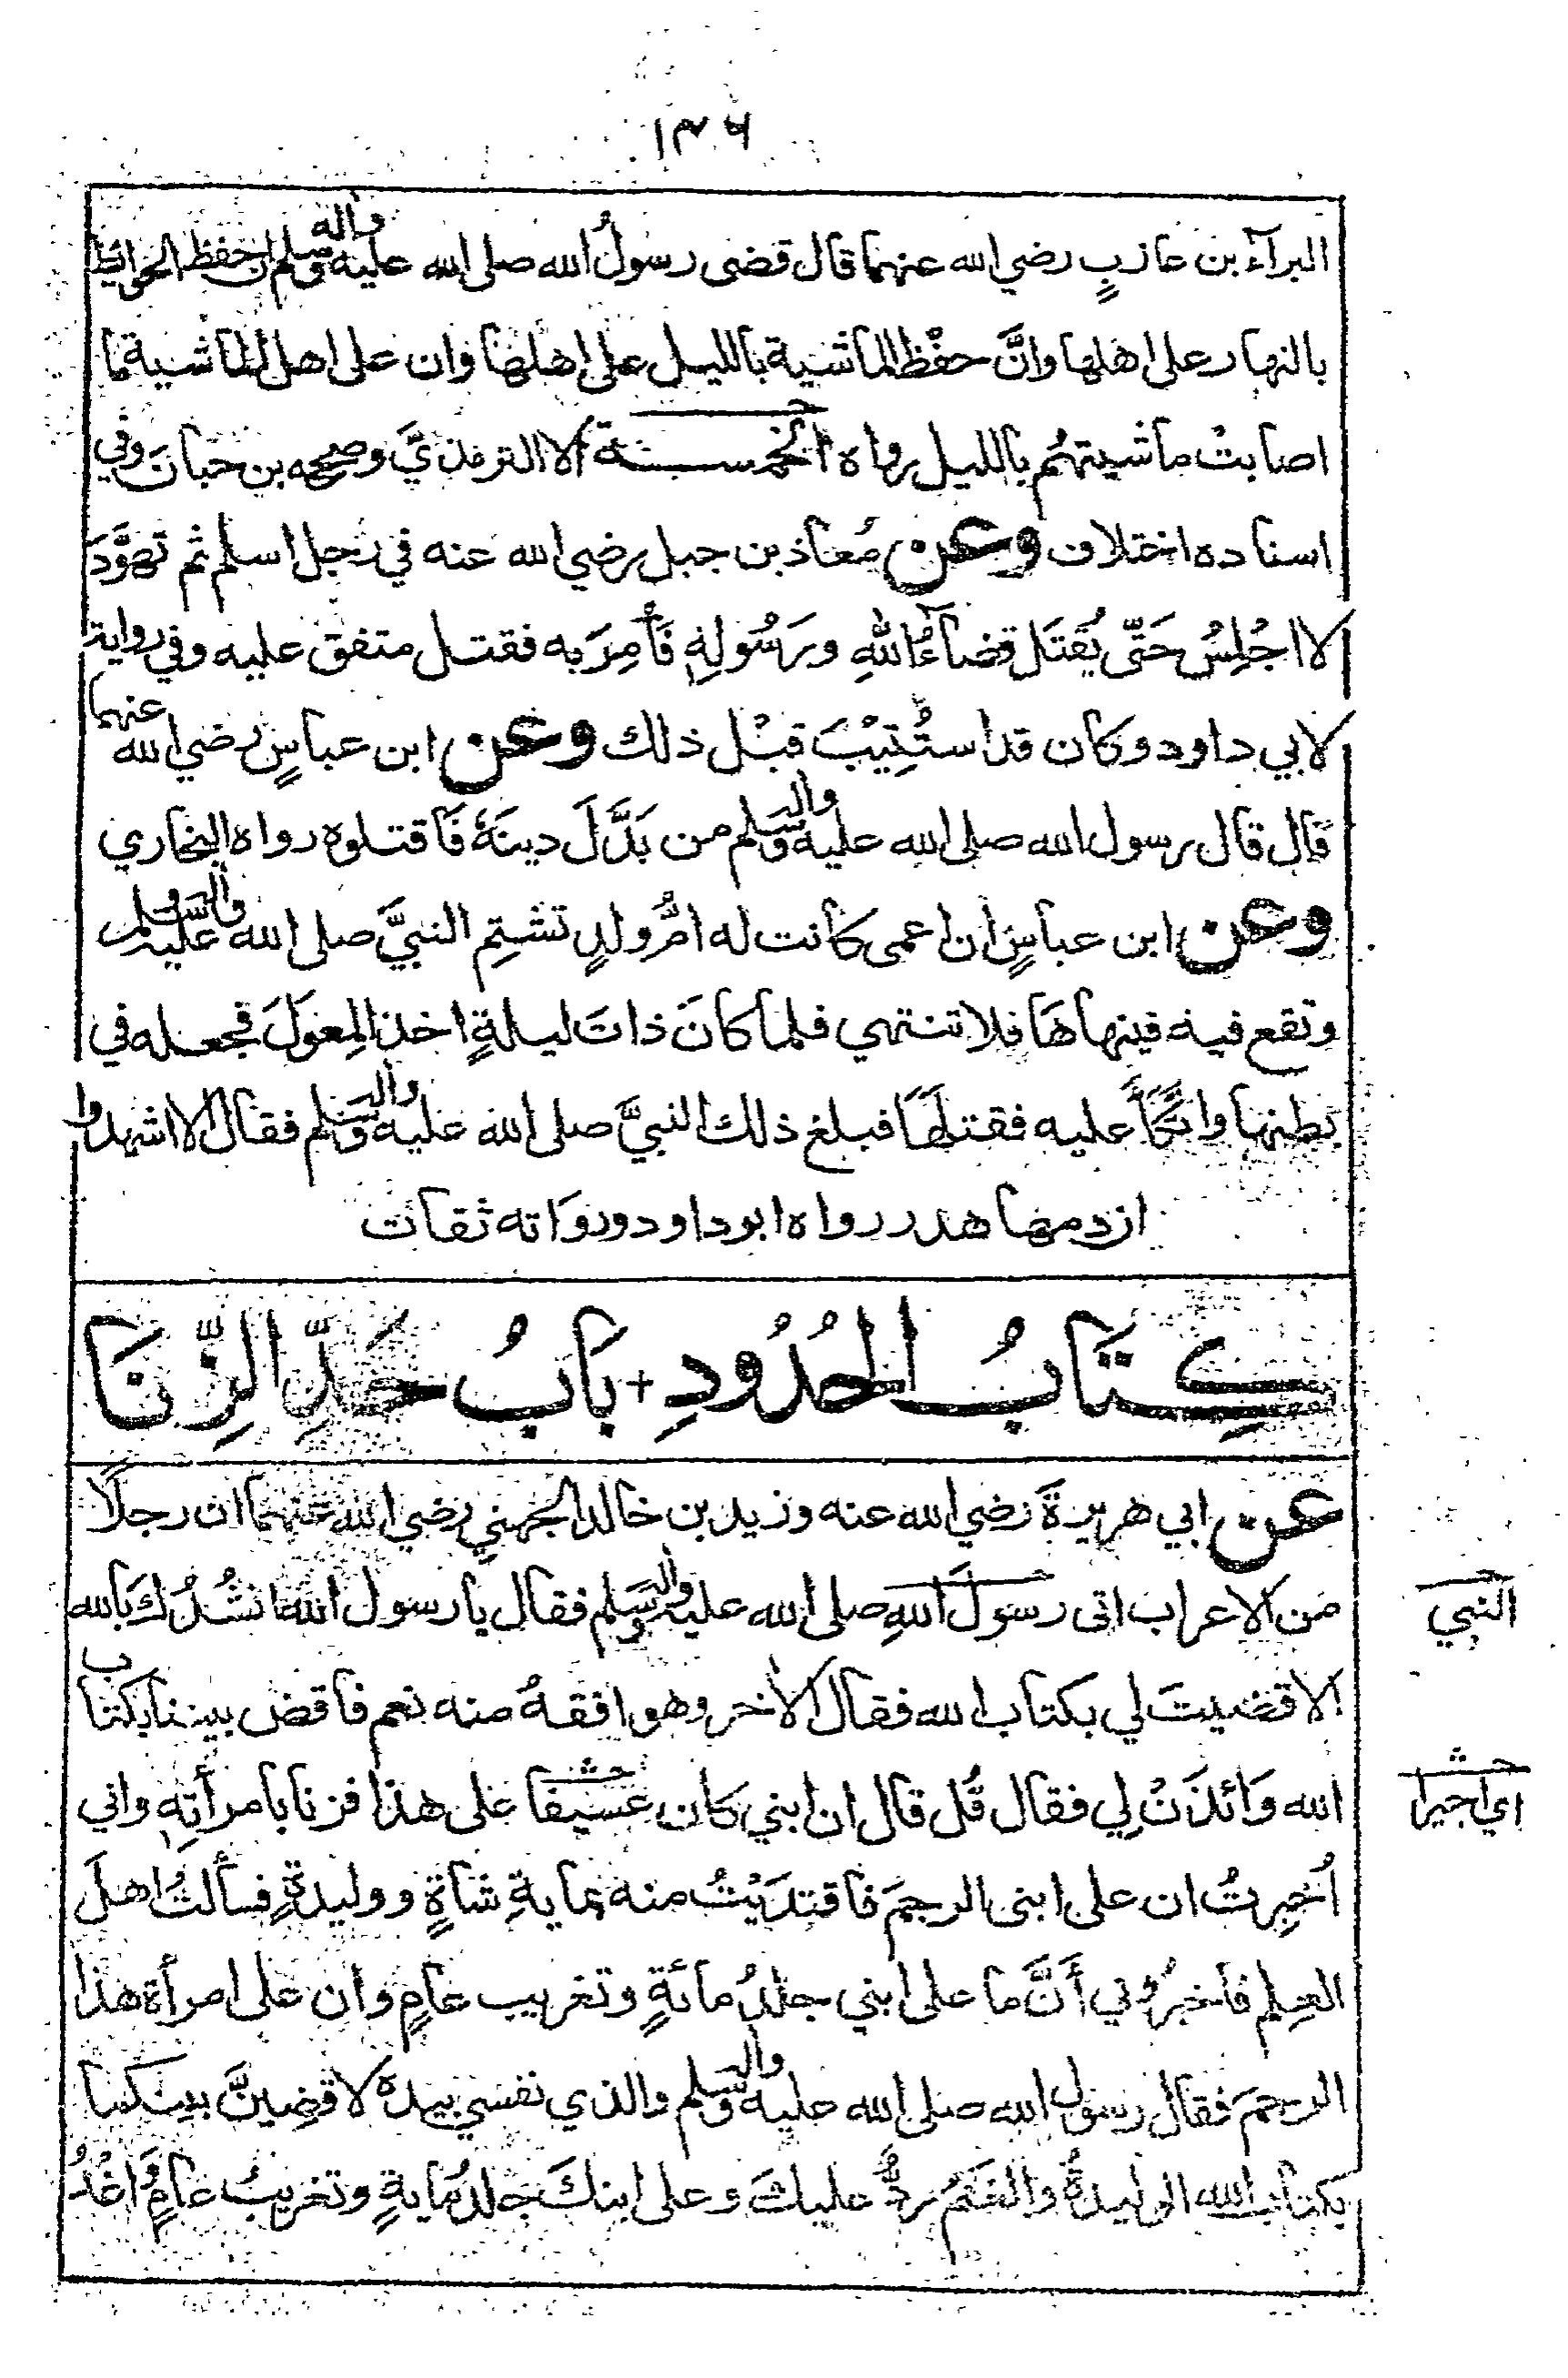 ١٣٦
البرآء بن عازبٍ رضي الله عنهما قال قضى رسولُ الله صلى الله عليه وآله وسلم ان حفظ الحوائط
بالنهار على اهلها وانَّ حفْظ الماشية بالليل على اهلها وان على اهل الماشية ما
اصابتْ ماشيتهُم بالليل رواه الخمسة الا الترمذيَّ وصححه بن حبان وفي
اسناده اختلاف وعن مُعاذ بن جبل رضي الله عنه في رجل اسلم ثم تهوَّدَ
لا اجْلِسُ حَتّى يُقتَل قضآءُ اللهِ ورَسُولِهِ فَأُمِرَ به فقتل متفق عليه وفي رواية
لابي داود وكان قد استُتِيْبَ قبْل ذلك وعن ابن عباسٍ رضي الله عنهما
قال قال رسول الله صلى الله عليه وآله وسلم من بَدَّلَ دينَهُ فَاقتلوه رواه البخاري
وعن ابن عباسٍ ان اعمى كانت له امُّ ولدٍ تشتِم النبيَّ صلى الله عليه وآله وسلم
وتقع فيه فينهاهَا فلا تنتهي فلما كانَ ذاتَ ليلةٍ اخذ المِعوَلَ فجعله في
بطنها واتّكأَ عليه فقتلهَا فبلغ ذلك النبيَّ صلى الله عليه وآله وسلم فقال الا اشهدوا
ان دمها هدر رواه ابو داود ورواته ثقات
كِتَابُ الحُدُودِ + بَابُ حَدِّ الزِّنَا
عن ابي هريرةَ رضي الله عنه وزيد بن خالد الجهني رضي الله عنهما ان رجلًا
من الاعراب اتى رسولَ اللهِ صلى الله عليه وآله وسلم فقال يا رسول الله انشُدُكَ بالله
النبي
الا قضيتَ لي بكتاب الله فقال الاخر وهو افقهُ منه نعم فاقض بيننا بكتاب
الله وَائذَنْ لِي فقال قُل قال ان ابني كان عَسيفًا على هذا فزنا بامرأتِهِ واني
اي اجيرا
اُخبِرتُ ان على ابنى الرجمَ فافتدَيْتُ منه بمايةِ شاةٍ ووليدةٍ فسألتُ اهلَ
العِلم فاخبرُوني أَنَّ ما على ابني جلدُ مائةٍ وتغريب عامٍ وان على امرأة هذا
الرجمَ فقال رسول الله صلى الله عليه وآله وسلم والذي نفسي بيده لاقضِينَّ بينكما
بكتاب الله الوليدةُ والغنَمُ ردٌّ عليكَ وعلى ابنكَ جلدُ مايةٍ وتغريبُ عامٍ وَاغْدُ